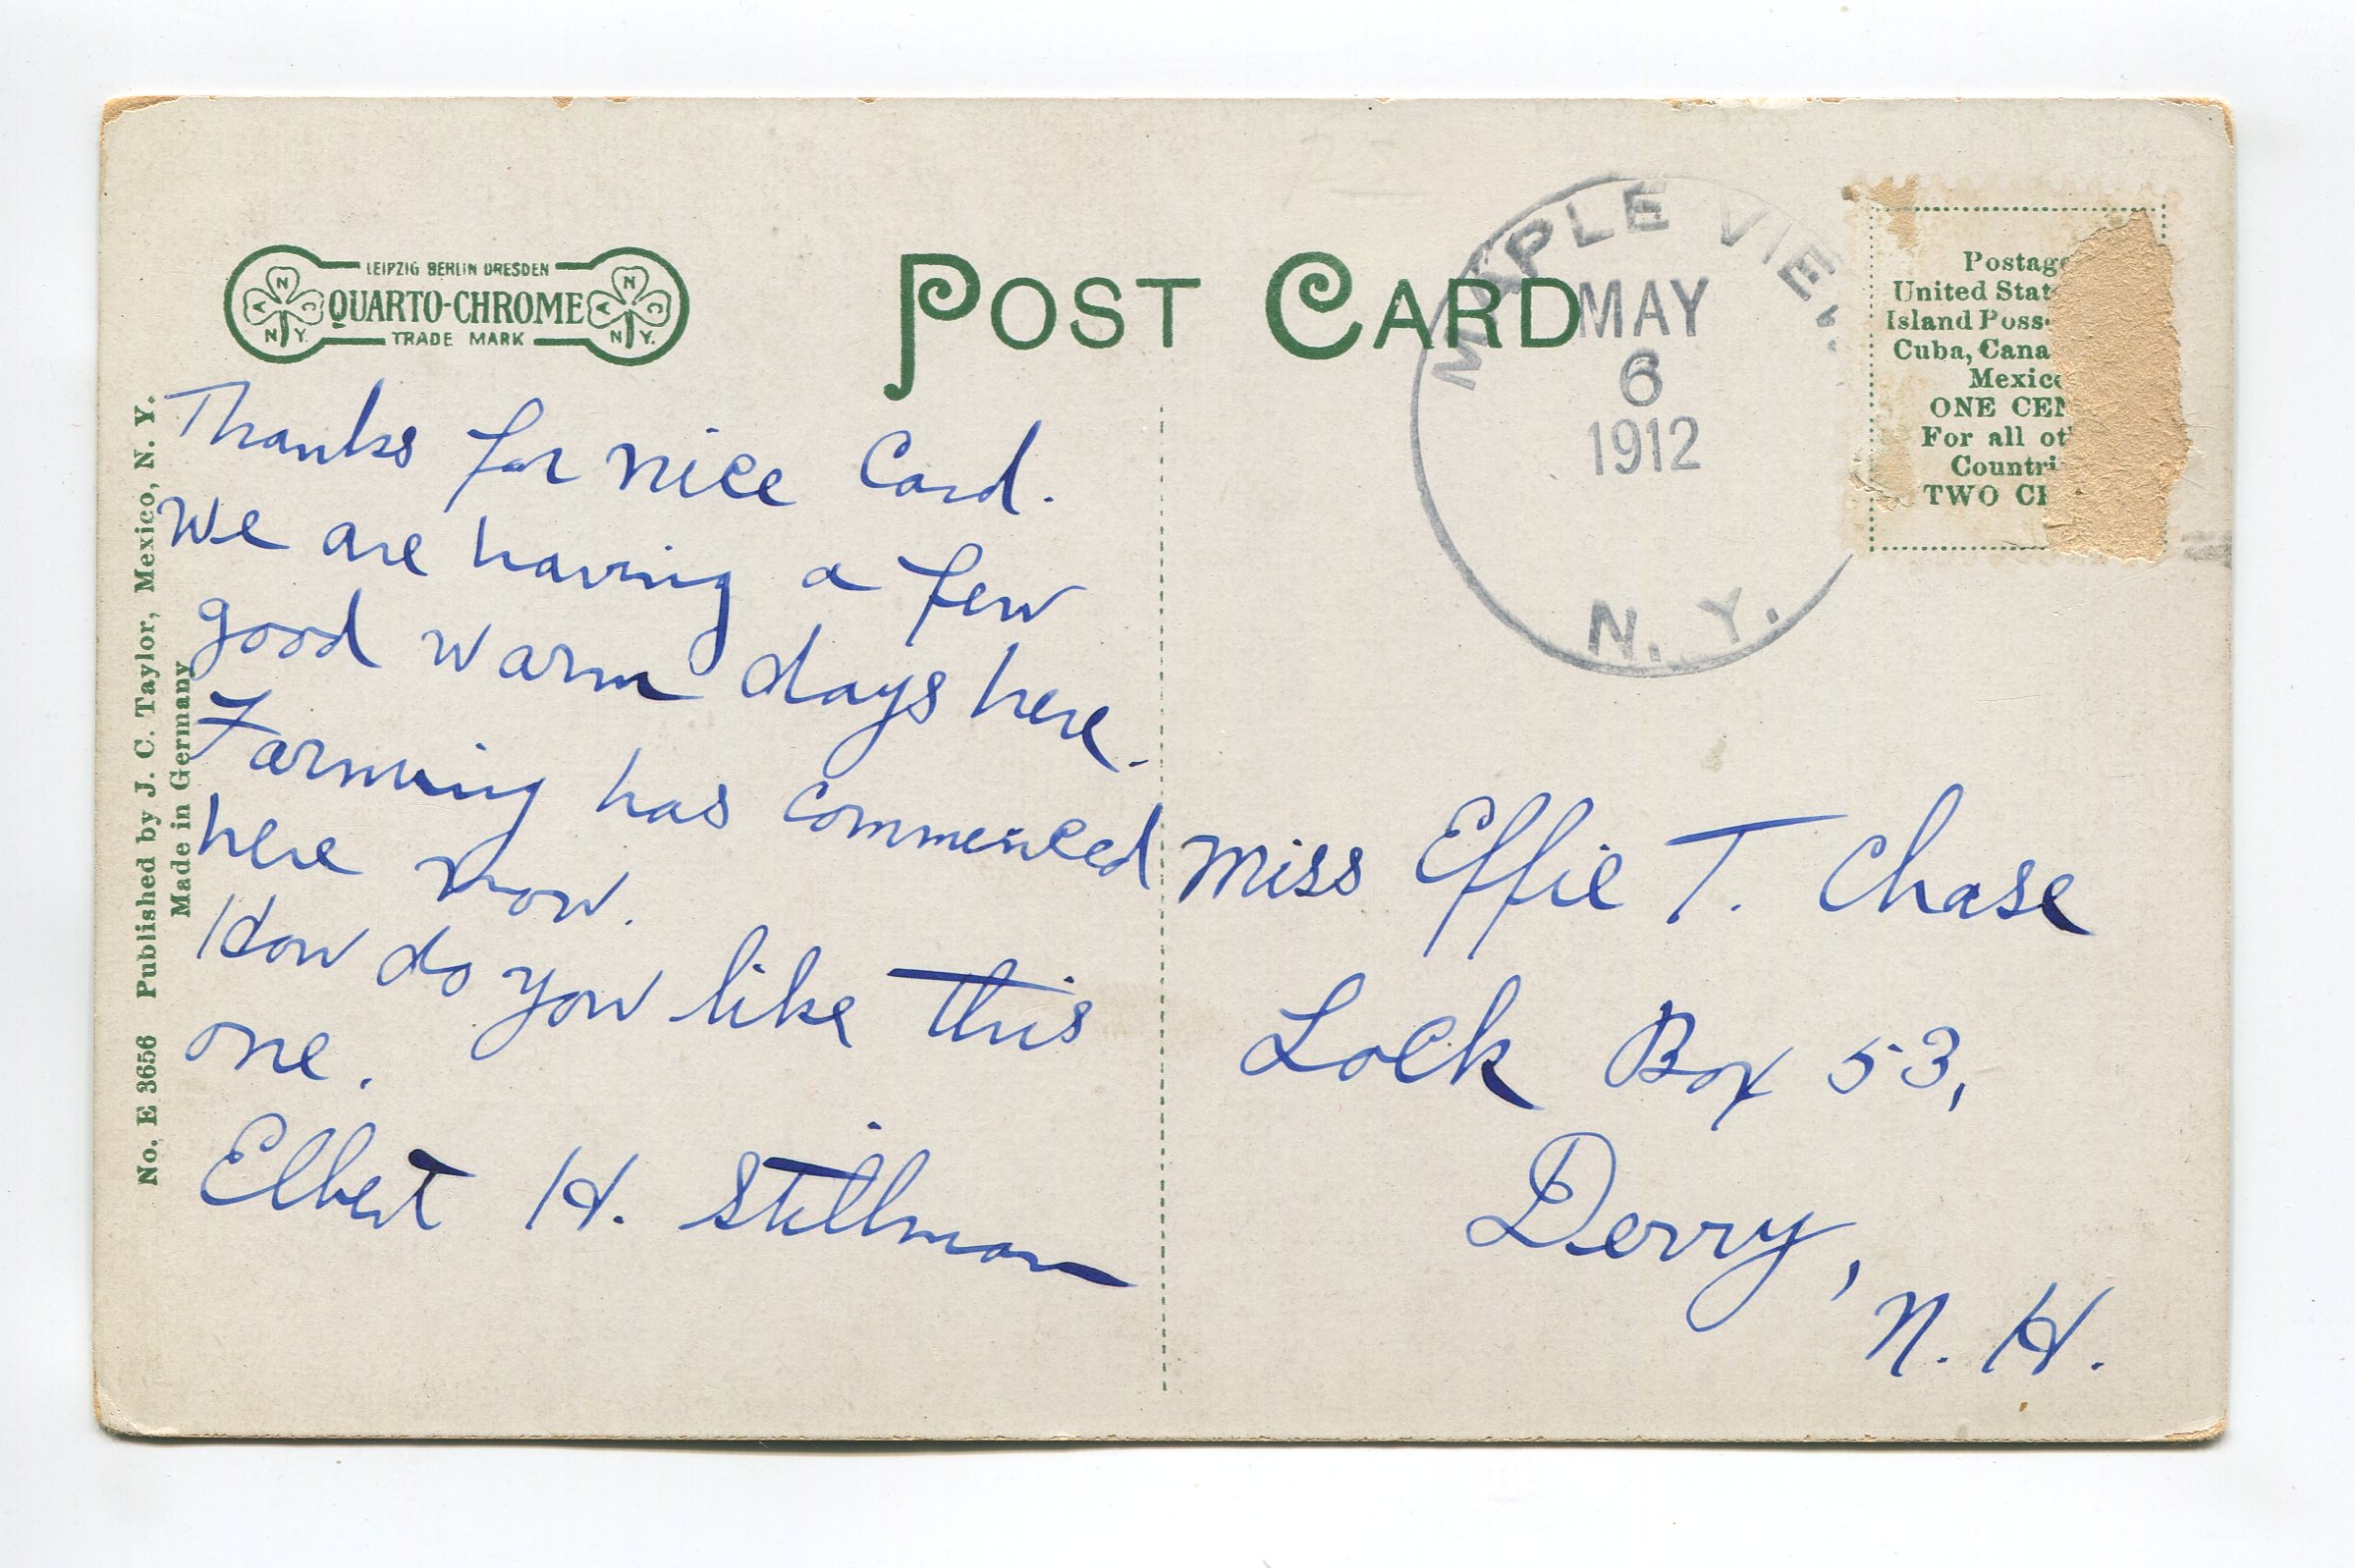 LEIPZIG BERLIN DRESDEN
QUARTO-CHROME
TRADE MARK
A N C
N. Y.
A N C
N. Y.
POST CARD
MAPLE VIEW
MAY
6
1912
N. Y.
Postage
United Stat
Island Poss
Cuba, Cana
Mexico
ONE CEN
For all ot
Countri
TWO CE
No. E 3656 Published by J. C. Taylor, Mexico, N. Y.
Made in Germany
Thanks for nice Card.
We are having a few
good warm days here.
Farming has commenced
here now.
How do you like this
one.
Elbert H. Stillman
Miss Effie T. Chase
Lock Box 53,
Derry,
N. H.